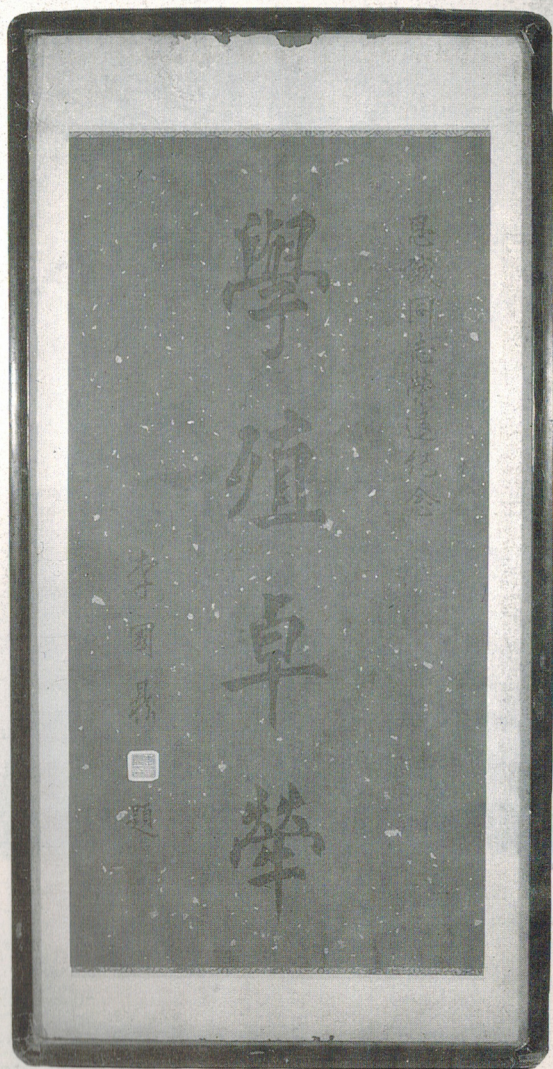 思誠同志榮退紀念
學殖卓犖
李國鼎題